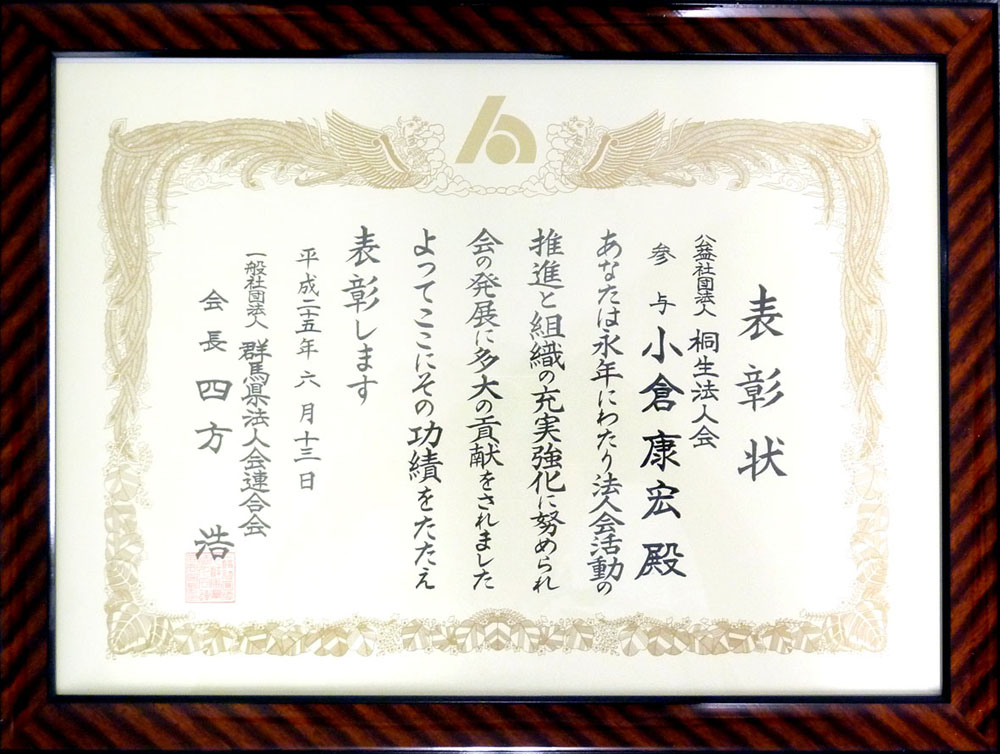 表彰状
公益社団法人 桐生法人会
参与 小倉康宏殿
あなたは永年にわたり法人会活動の
推進と組織の充実強化に努められ
会の発展に多大の貢献をされました
よってここにその功績をたたえ
表彰します
平成二十五年六月十三日
一般社団法人 群馬県法人会連合会
会長 四方 浩